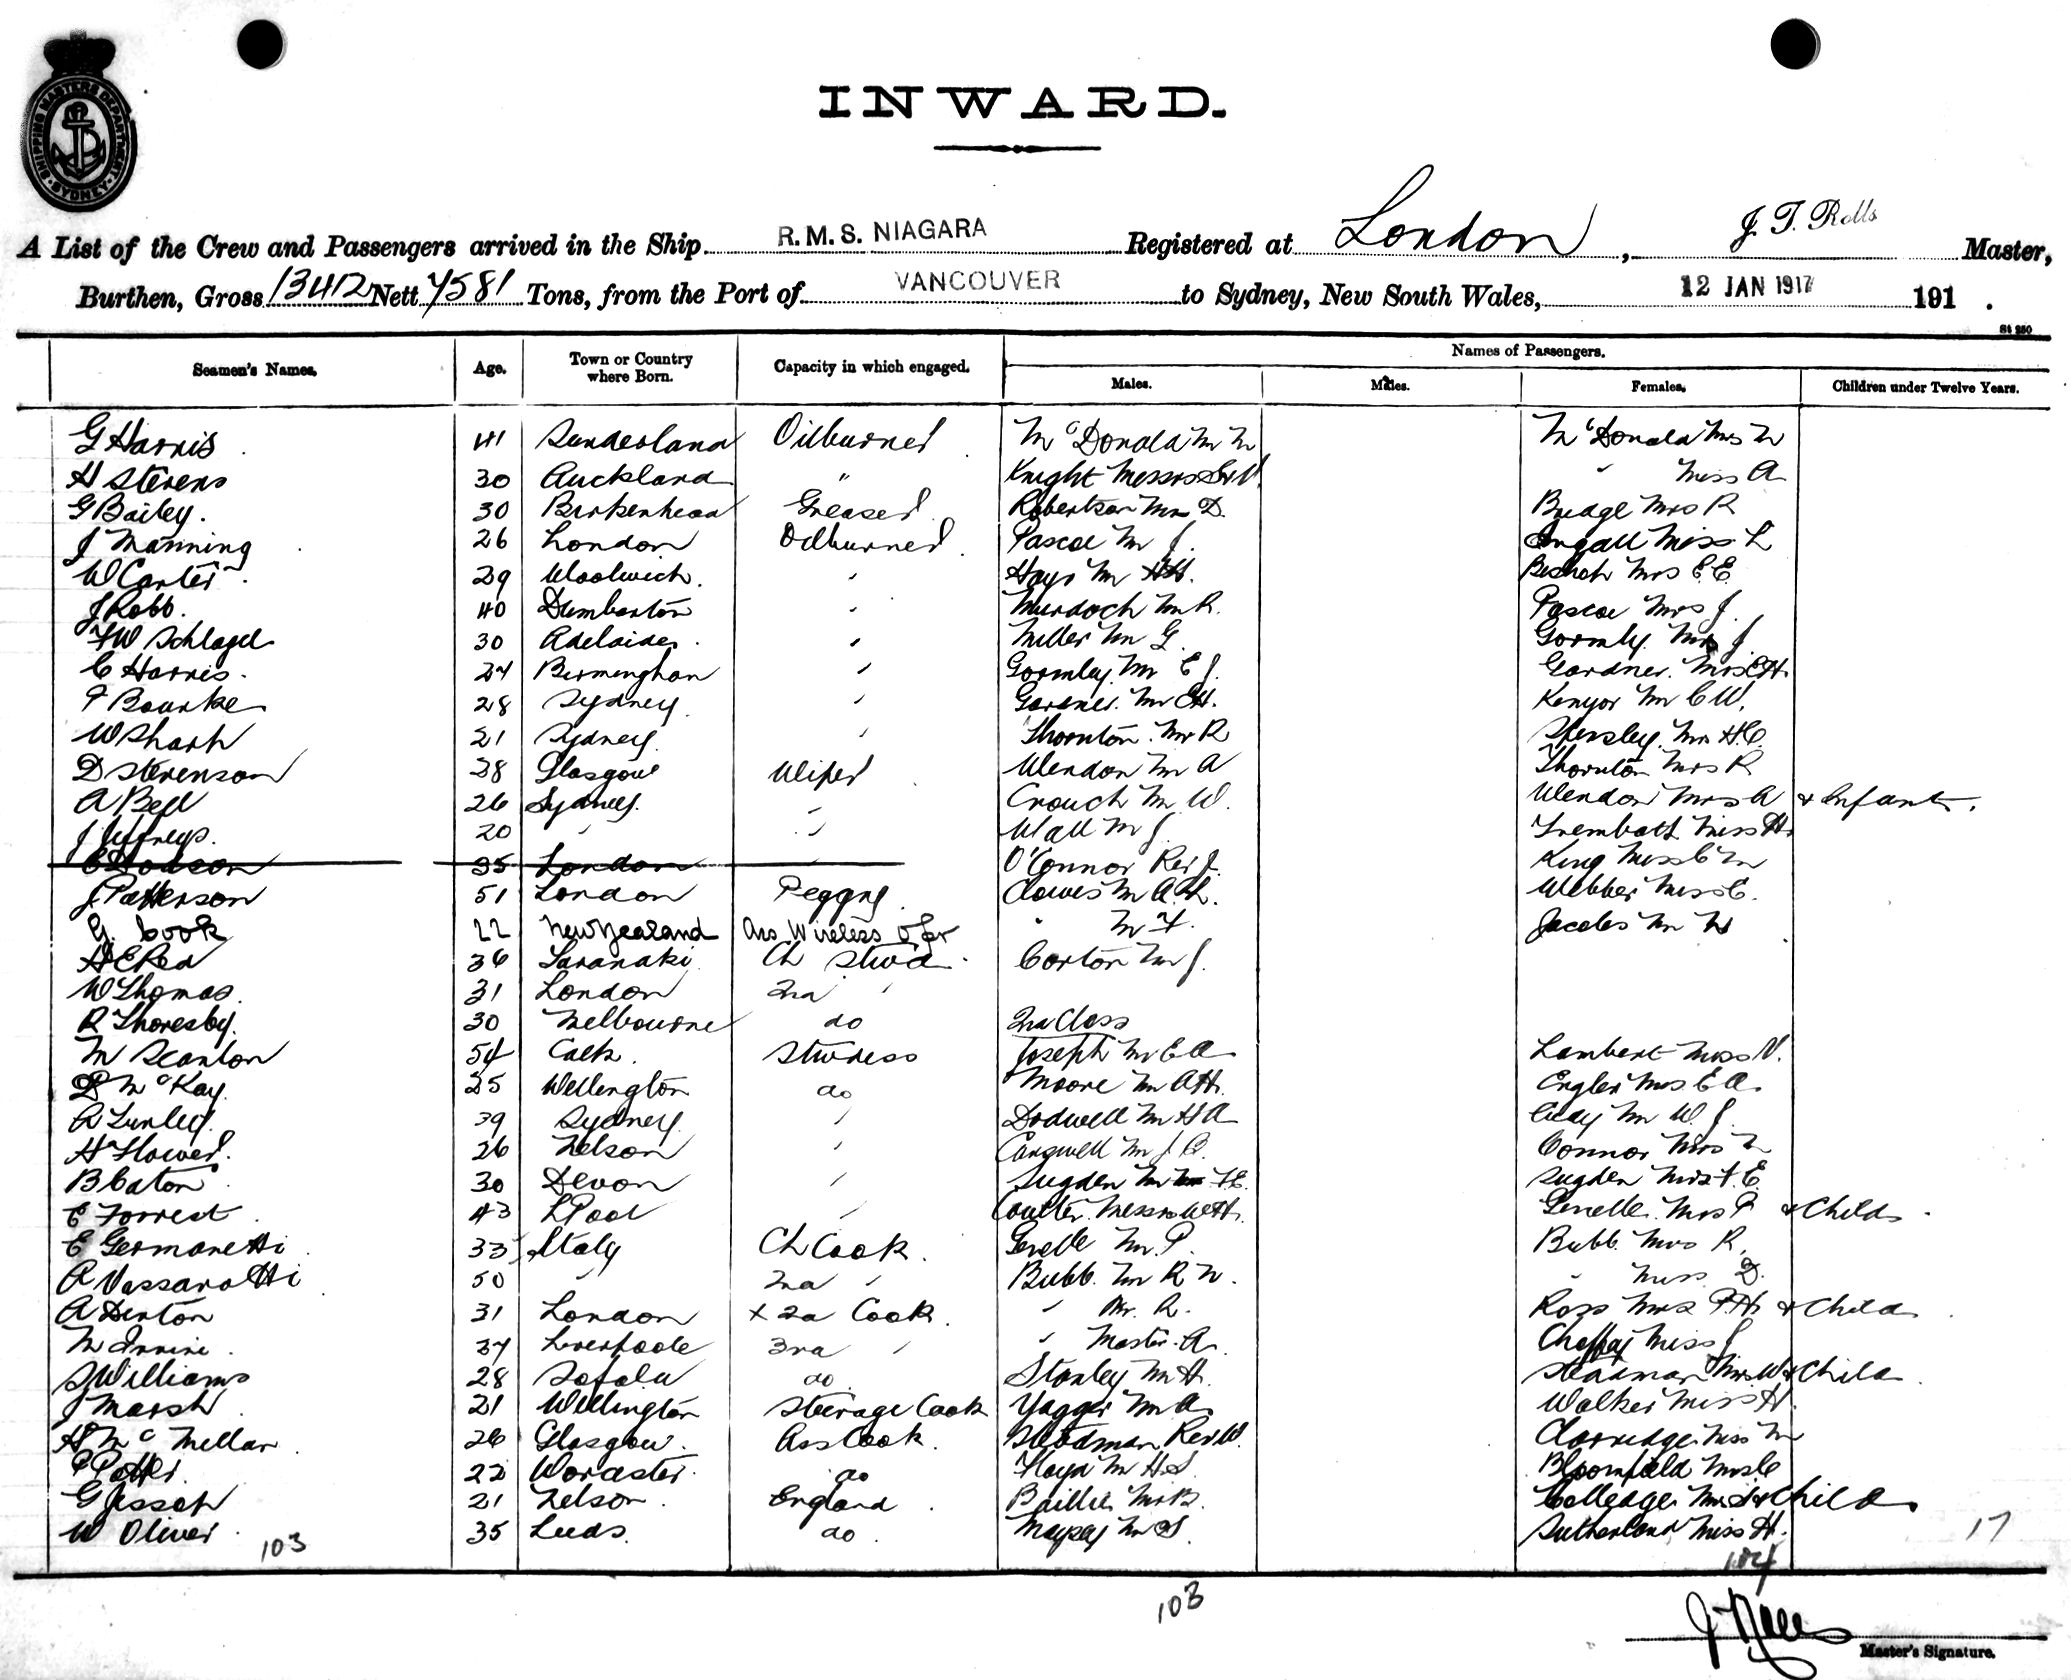 SHIPPING MASTERS DEPARTMENT SYDNEY
INWARD.
A List of the Crew and Passengers arrived in the Ship R.M.S. NIAGARA Registered at London, J. T. Rolls Master,
Burthen, Gross 13412 Nett 7581 Tons, from the Port of VANCOUVER to Sydney, New South Wales, 12 JAN 1917 191 .
St 250
Seamen's Names. Age. Town or Country where Born. Capacity in which engaged. Names of Passengers.
Males. Males. Females. Children under Twelve Years.
G Harris 41 Sunderland Oilburner McDonald Mr N McDonald Mrs N
H Stevens 30 Auckland " Knight Messrs " Miss A
G Bailey. 30 Birkenhead Greaser Robertson Mr D. Budge Mrs R
J Manning 26 London Oilburner. Pascoe Mr J. Ingall Miss L
W Carter. 29 Woolwich. " Hays Mr Bishop Mrs E.E.
J Robb. 40 Dumbarton " Murdoch Mr R. Pascoe Mrs J.
FW Schlagel 30 Adelaide. " Miller Mr G. Gormly Mrs J.
C Harris. 24 Birmingham " Gormley Mr E J. Gardner. Mrs EH.
F Bourke 28 Sydney. " Gardner. Mr EH. Kenyon Mr C W.
W Sharp 21 Sydney. " Thornton. Mr R Hensley. Mr H.C.
D Stevenson 28 Glasgow Wiper Wendon Mr A Thornton Mrs R
A Bell 26 Sydney. " Crouch Mr W. Wendon Mrs A & Infant.
J Jeffreys. 20 " " Wall Mr J. Trembath Miss H.
C Hodson 35 London O'Connor Rev J. King Miss C M
J Patterson 51 London Peggy. Clowes Mr A. L. Webber Miss C.
G. Cook 22 New Zealand Ass Wireless Opr " Mr F. Jacobs Mr N
H E Rea 36 Taranaki Ch Stwd. Corton Mr J.
W Thomas. 31 London 2nd "
R Thoresby. 30 Melbourne do 2nd Class
M Scanlon 54 Cork. Stwdess Joseph Mr E A Lambert Miss V.
D McKay. 25 Wellington do Moore Mr AH. Engler Mrs E A.
A Lunley. 39 Sydney. " Dodwell Mr H A Eddy Mr W J.
H Flower. 26 Nelson " Carswell Mr J B. Connor Mrs
B Caton. 30 Devon " Sugden Mr F E. Sugden Mrs F. E.
E Forrest. 43 LPool " Coulter. Messrs Genelle. Mrs P & Child.
E Germanetti 33 Italy Ch Cook. Genelle Mr. P. Bubb. Mrs R.
A Vassarotti 50 " 2nd " Bubb. Mr R N. " Miss D.
A Hinton 31 London x 2d Cook. " Mr. R. Ross Mrs P.H. & Child.
M Irvine. 37 Liverpoole 3rd " " Master A. Chaffey Miss J
S Williams 28 Sofala do. Stanley Mr H. Steadman Mrs W & Child.
J Marsh 21 Wellington Steerage Cook Yagger Mr A. Walker Miss H.
H McMillan. 26 Glasgow. Ass Cook. Steadman Rev W. Claridge Miss M
P Potter. 22 Worcester. do Floyd Mr H.S. Bloomfield Mrs C
G Jessop 21 Nelson. England. Baillie Mr B. Colledge Mrs & Child.
W Oliver. 35 Leeds. do. Mr S. Sutherland Miss H. 17
103 104
103
J Rolls
Master's Signature.